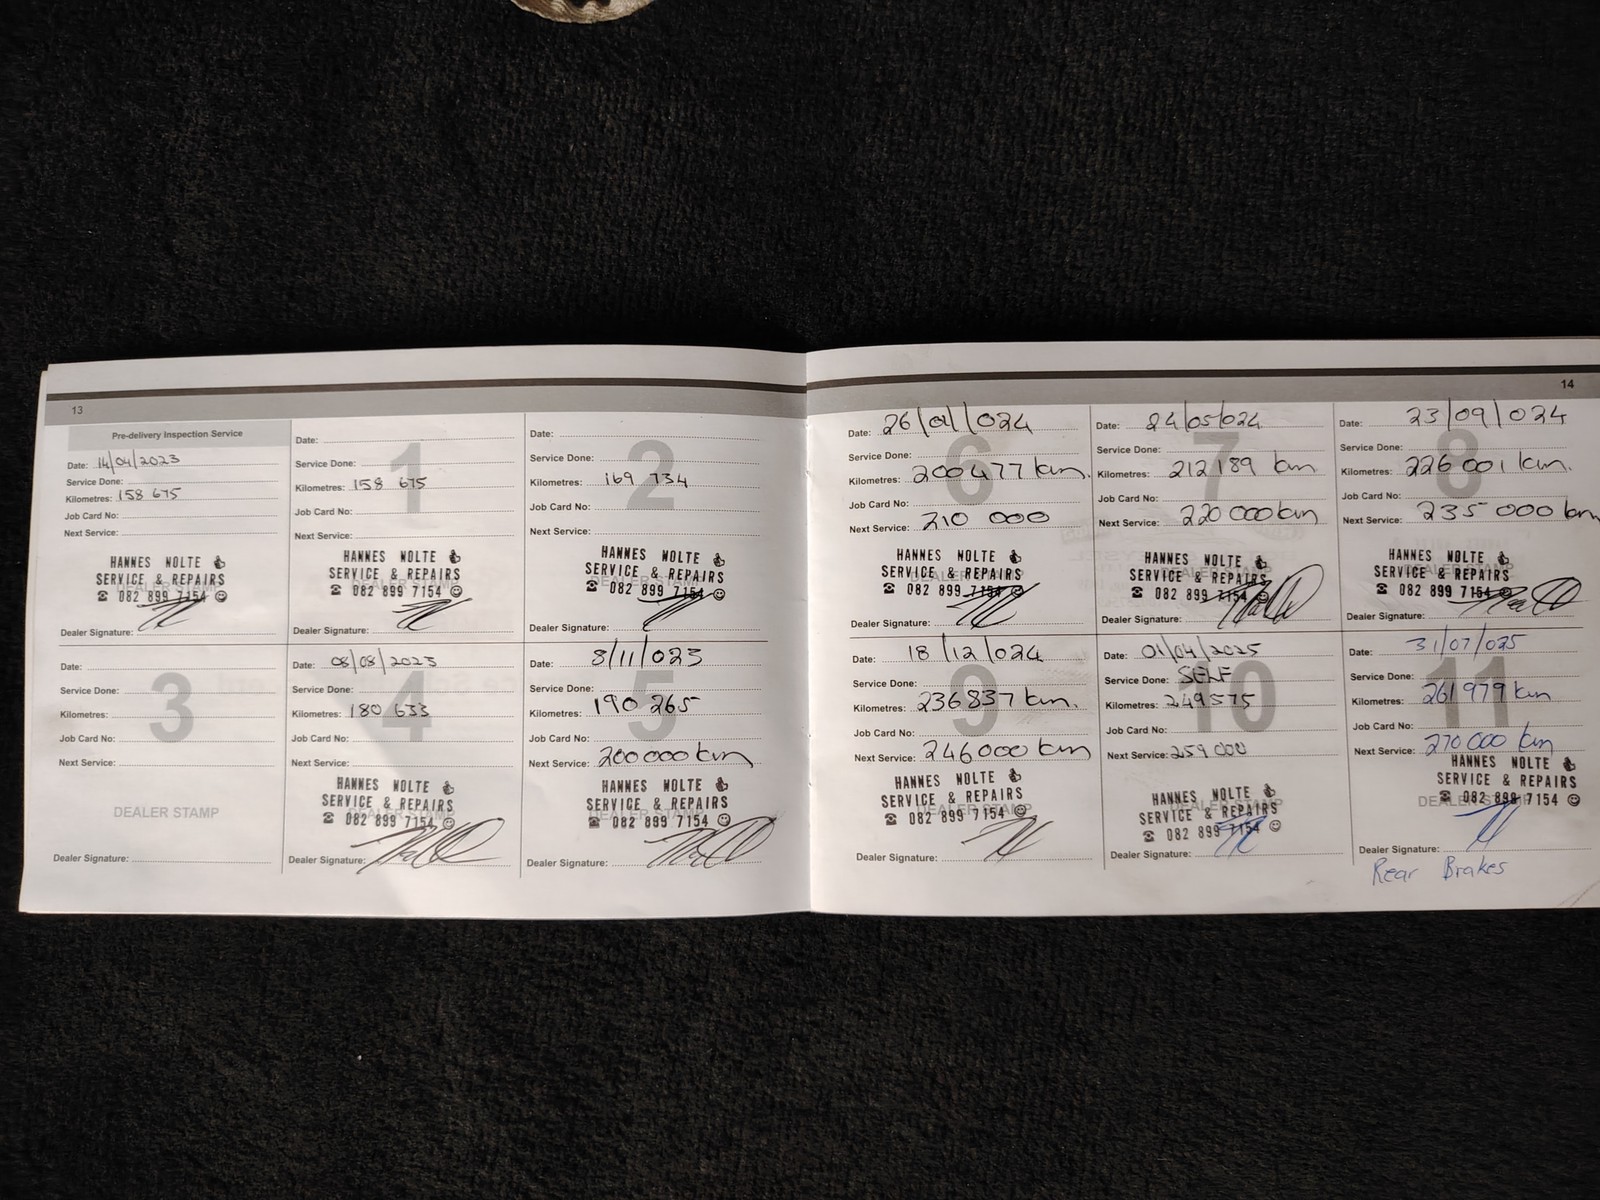 13
Pre-delivery Inspection Service
Date: 14/04/2023
Service Done:
Kilometres: 158 675
Job Card No:
Next Service:
HANNES NOLTE
SERVICE & REPAIRS
☎ 082 899 7154 ☺
Dealer Signature:
1
Date:
Service Done:
Kilometres: 158 675
Job Card No:
Next Service:
HANNES NOLTE
SERVICE & REPAIRS
☎ 082 899 7154 ☺
Dealer Signature:
2
Date:
Service Done:
Kilometres: 169 734
Job Card No:
Next Service:
HANNES NOLTE
SERVICE & REPAIRS
☎ 082 899 7154 ☺
Dealer Signature:
3
Date:
Service Done:
Kilometres:
Job Card No:
Next Service:
DEALER STAMP
Dealer Signature:
4
Date: 08/08/2023
Service Done:
Kilometres: 180 633
Job Card No:
Next Service:
HANNES NOLTE
SERVICE & REPAIRS
DEALER STAMP
☎ 082 899 7154 ☺
Dealer Signature:
5
Date: 8/11/023
Service Done:
Kilometres: 190 265
Job Card No:
Next Service: 200000 km
HANNES NOLTE
SERVICE & REPAIRS
DEALER STAMP
☎ 082 899 7154 ☺
Dealer Signature:
14
6
Date: 26/01/024
Service Done:
Kilometres: 200477 km.
Job Card No:
Next Service: 210 000
HANNES NOLTE
SERVICE & REPAIRS
DEALER STAMP
☎ 082 899 7154 ☺
Dealer Signature:
7
Date: 24/05/024
Service Done:
Kilometres: 212189 km
Job Card No:
Next Service: 220 000 km
HANNES NOLTE
DEALER STAMP
SERVICE & REPAIRS
☎ 082 899 7154 ☺
Dealer Signature:
8
Date: 23/09/024
Service Done:
Kilometres: 226 001 km.
Job Card No:
Next Service: 235 000 km
HANNES NOLTE
DEALER STAMP
SERVICE & REPAIRS
☎ 082 899 7154 ☺
Dealer Signature:
9
Date: 18/12/024
Service Done:
Kilometres: 236837 km.
Job Card No:
Next Service: 246000 km
HANNES NOLTE
SERVICE & REPAIRS
DEALER STAMP
☎ 082 899 7154 ☺
Dealer Signature:
10
Date: 01/04/2025
Service Done: SELF
Kilometres: 249575
Job Card No:
Next Service: 259 000
HANNES NOLTE
DEALER STAMP
SERVICE & REPAIRS
☎ 082 899 7154 ☺
Dealer Signature:
11
Date: 31/07/025
Service Done:
Kilometres: 261979 km
Job Card No:
Next Service: 270 000 km
HANNES NOLTE
SERVICE & REPAIRS
DEALER STAMP
☎ 082 899 7154 ☺
Dealer Signature:
Rear Brakes